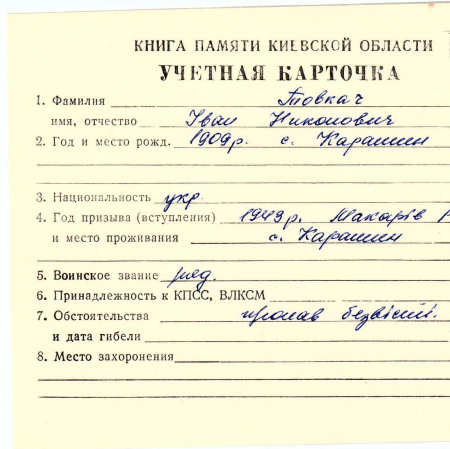 КНИГА ПАМЯТИ КИЕВСКОЙ ОБЛАСТИ
УЧЕТНАЯ КАРТОЧКА
1. Фамилия Товкач
имя, отчество Іван Никонович
2. Год и место рожд. 1909р. с. Карашин
3. Национальность укр
4. Год призыва (вступления) 1943р. Макарів
и место проживания с. Карашин
5. Воинское звание ряд.
6. Принадлежность к КПСС, ВЛКСМ
7. Обстоятельства пропав безвісті.
и дата гибели
8. Место захоронения